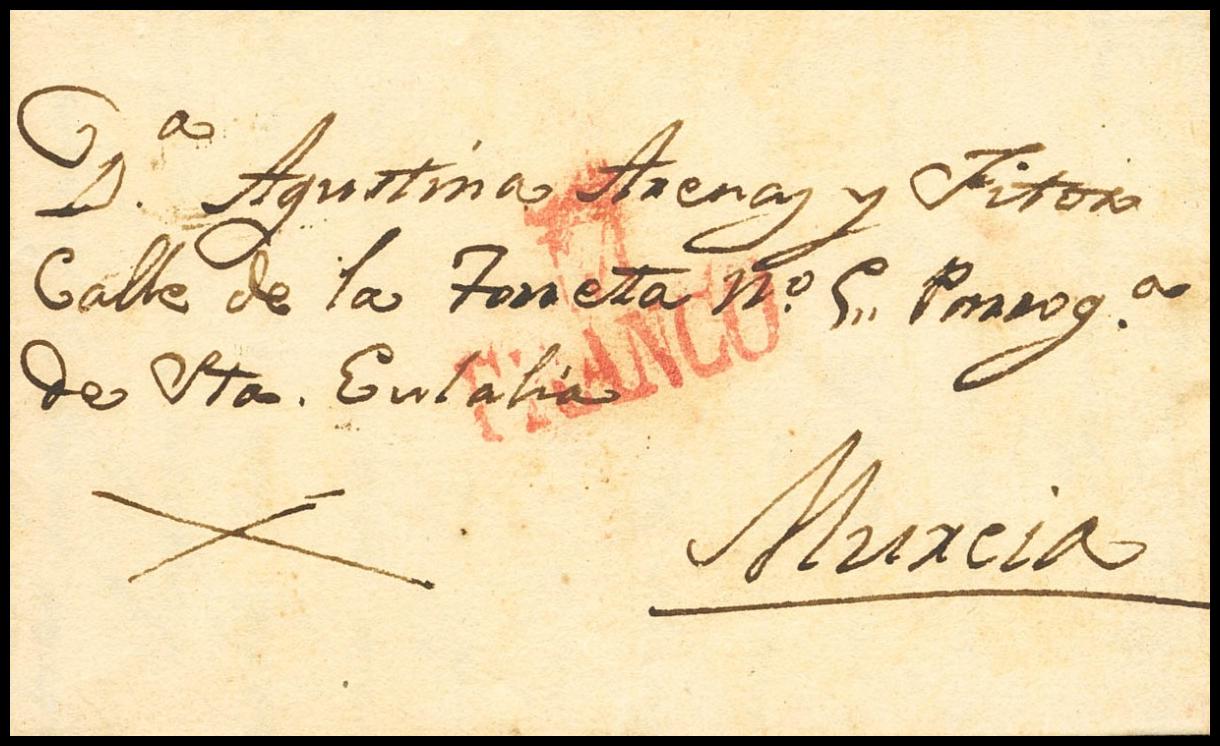 D.ª Agustina Arenas y Fiton
Calle de la Torreta Nº 5 Parrog.ª
de Sta. Eulalia
FRANCO
Murcia